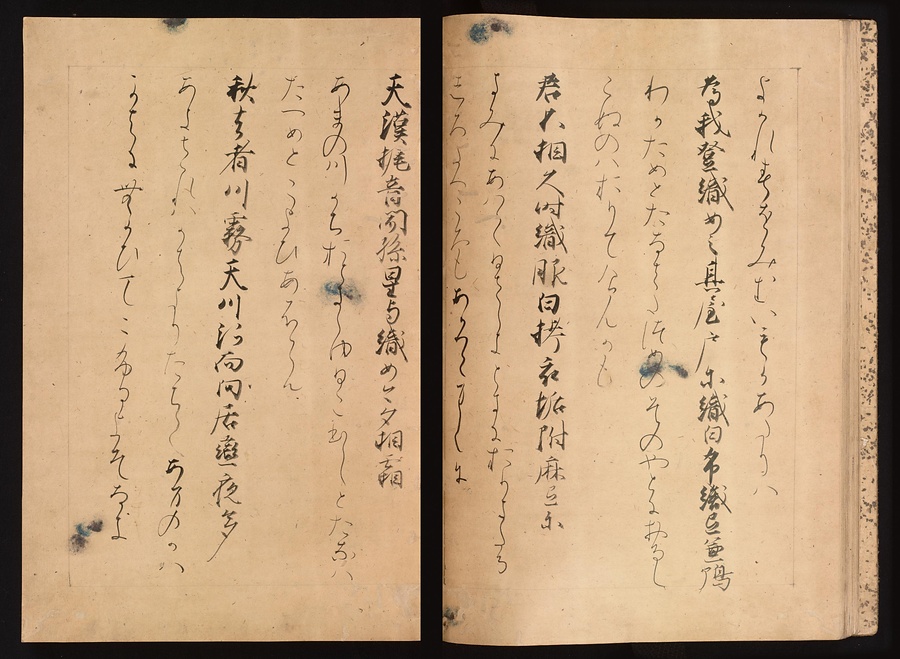 よかれすそみむいもかあたりハ
為我登織女之其屋戸尓織白布織弖兼鴨
わかためとたなはたつめのそのやとにおるし
ろぬのハおりてけんかも
君不相久時織服白栲衣垢附麻弖尓
きみにあハてひさしきときにおりきたる
しろたへころもあかつくまてに
天漢梶音聞孫星与織女今夕相霜
あまの川かちおときこゆひこほしとたなハ
たつめとこよひあふらし
秋去者川霧天川河向向居戀夜多
あきされハかはきりたちてあまのかハ
かはに無かひてこふるよそ